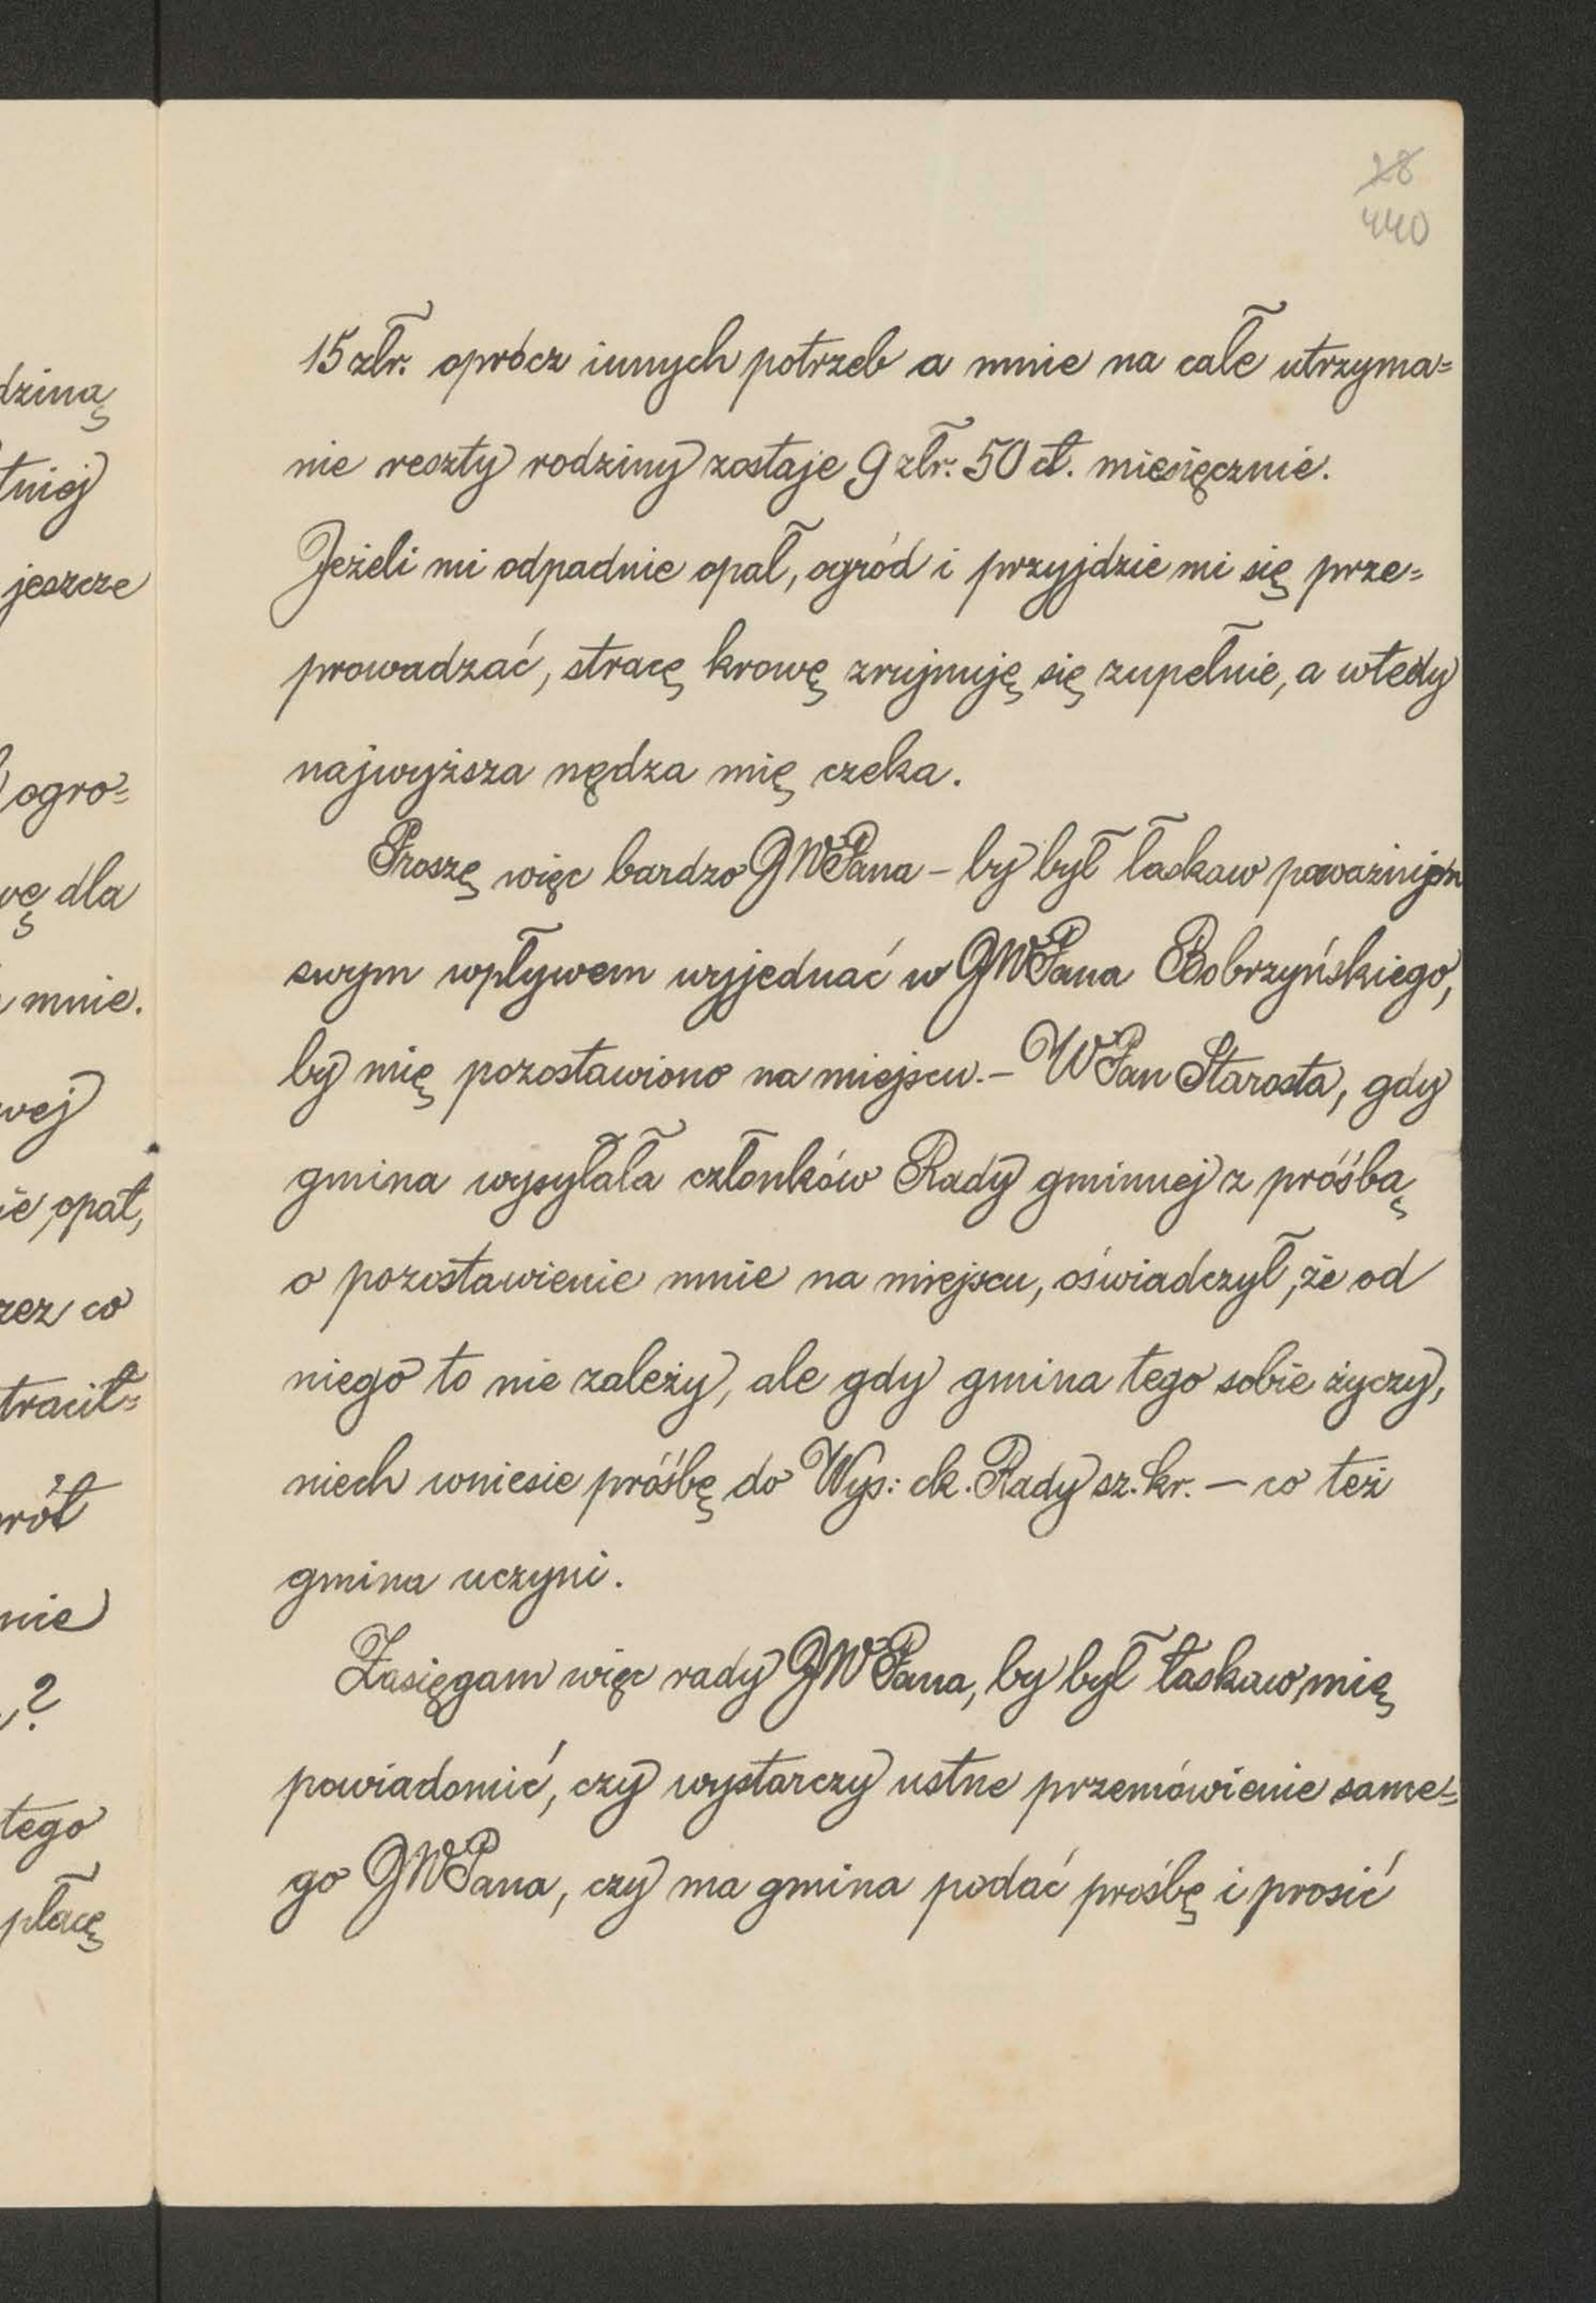 28
440
dziną
tniej
jeszcze
ogro=
wę dla
mnie.
wej
ie opał,
rzez co
tracił=
wrót
nie
?
tego
płacę
15 złr. oprócz innych potrzeb a mnie na całe utrzyma=
nie reszty rodziny zostaje 9 złr. 50 ct. miesięcznie.
Jeżeli mi odpadnie opał, ogród i przyjdzie mi się prze=
prowadzać, stracę krowę zrujnuję się zupełnie, a wtedy
najwyższa nędza mię czeka.
Proszę więc bardzo JWPana – by był łaskaw poważnym
swym wpływem wyjednać w JWPana Bobrzyńskiego,
by mię pozostawiono na miejscu. – WPan Starosta, gdy
gmina wysyłała członków Rady gminnej z próśbą
o pozostawienie mnie na miejscu, oświadczył, że od
niego to nie zależy, ale gdy gmina tego sobie życzy,
niech wniesie próśbę do Wys: ck. Rady sz. kr. – co też
gmina uczyni.
Zasięgam więc rady JWPana, by był łaskaw mię
powiadomić, czy wystarczy ustne przemówienie same=
go JWPana, czy ma gmina podać prośbę i prosić